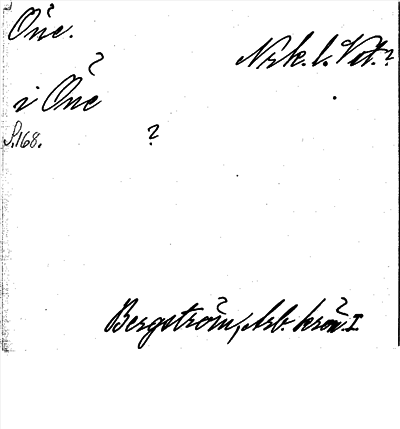 Öne.
Nrk. l. Vst.?
i Öne
S.168. ?
Bergström, Arb. krön. I